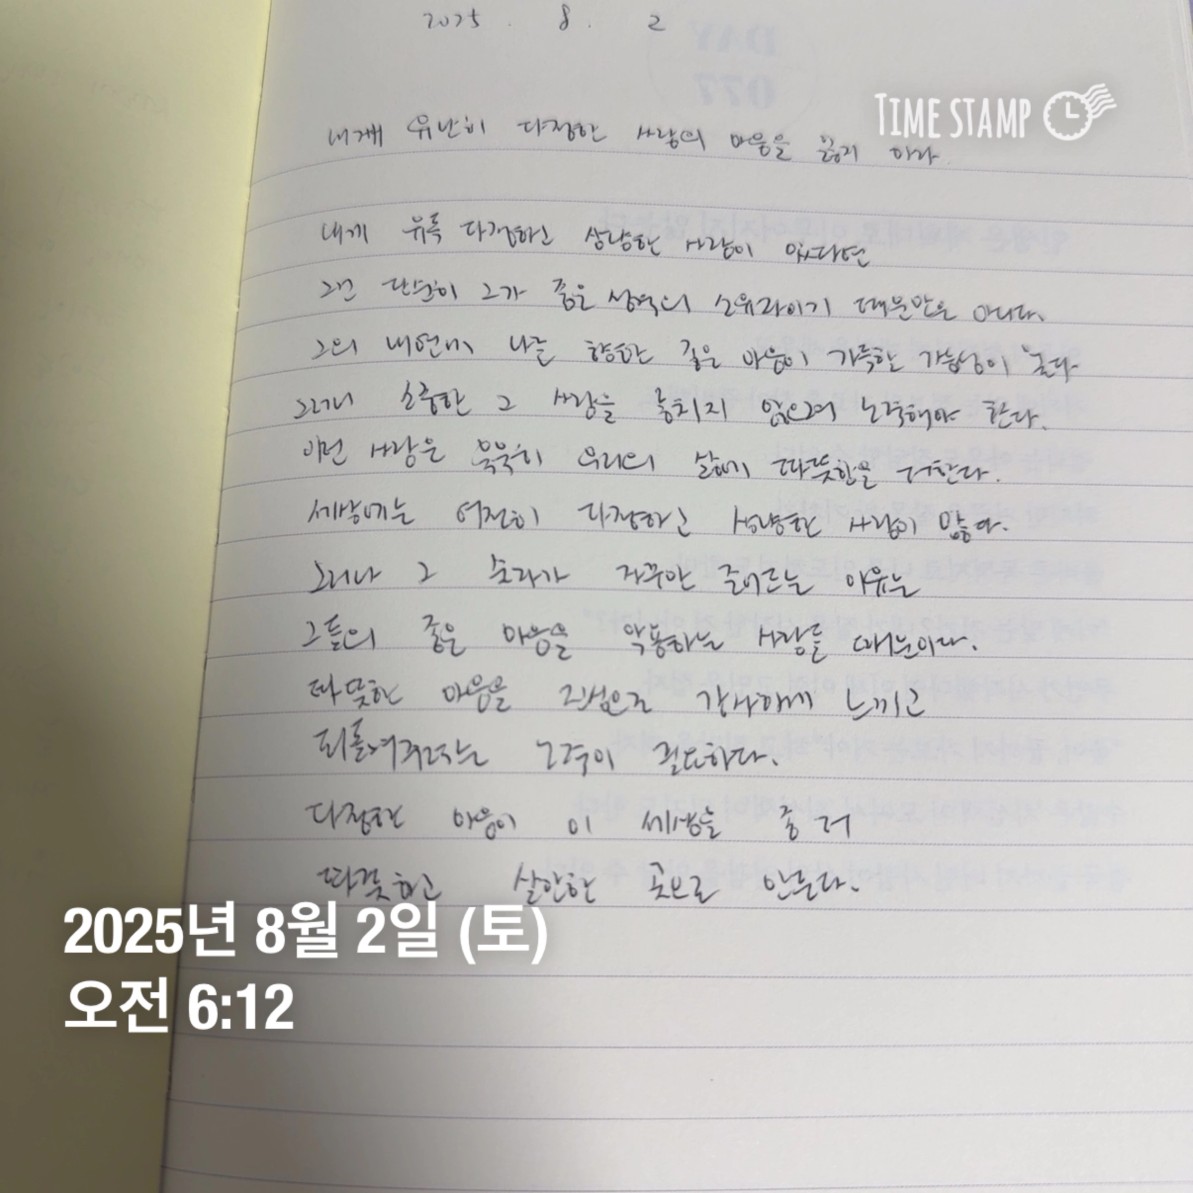 2025. 8. 2
DAY
077
TIME STAMP
내게 유난히 다정한 사람의 마음을 잃지 마라
내게 유독 다정하고 상냥한 사람이 있다면
그건 단순히 그가 좋은 성격의 소유자이기 때문만은 아니다.
그의 내면에 나를 향한 깊은 마음이 가득할 가능성이 높다
그러니 소중한 그 사람을 놓치지 않으려 노력해야 한다.
이런 사람은 묵묵히 우리의 삶에 따뜻함을 더한다.
세상에는 여전히 다정하고 상냥한 사람이 많다.
그러나 그 숫자가 자꾸만 줄어드는 이유는
그들의 좋은 마음을 악용하는 사람들 때문이다.
따뜻한 마음을 진심으로 감사하게 느끼고
되돌려주려는 노력이 필요하다.
다정한 마음이 이 세상을 좀 더
따뜻하고 살만한 곳으로 만든다.
2025년 8월 2일 (토)
오전 6:12